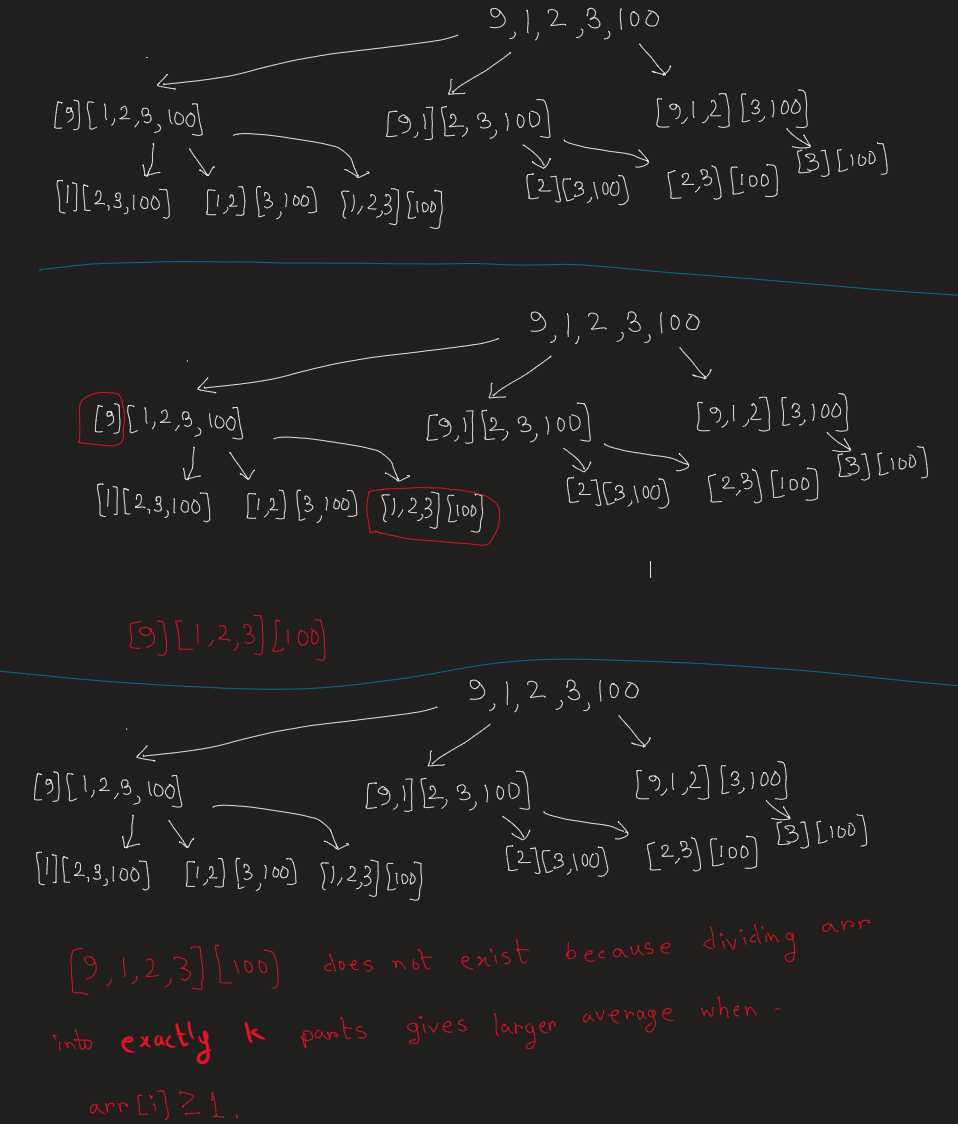 9,1,2,3,100
[9][1,2,3,100] [9,1][2,3,100] [9,1,2][3,100]
[3][100]
[1][2,3,100] [1,2][3,100] [1,2,3][100] [2][3,100] [2,3][100]
9,1,2,3,100
[9][1,2,3,100] [9,1][2,3,100] [9,1,2][3,100]
[3][100]
[1][2,3,100] [1,2][3,100] [1,2,3][100] [2][3,100] [2,3][100]
[9][1,2,3][100]
9,1,2,3,100
[9][1,2,3,100] [9,1][2,3,100] [9,1,2][3,100]
[3][100]
[1][2,3,100] [1,2][3,100] [1,2,3][100] [2][3,100] [2,3][100]
[9,1,2,3][100] does not exist because dividing arr
into exactly k parts gives larger average when -
arr[i] ≥ 1.